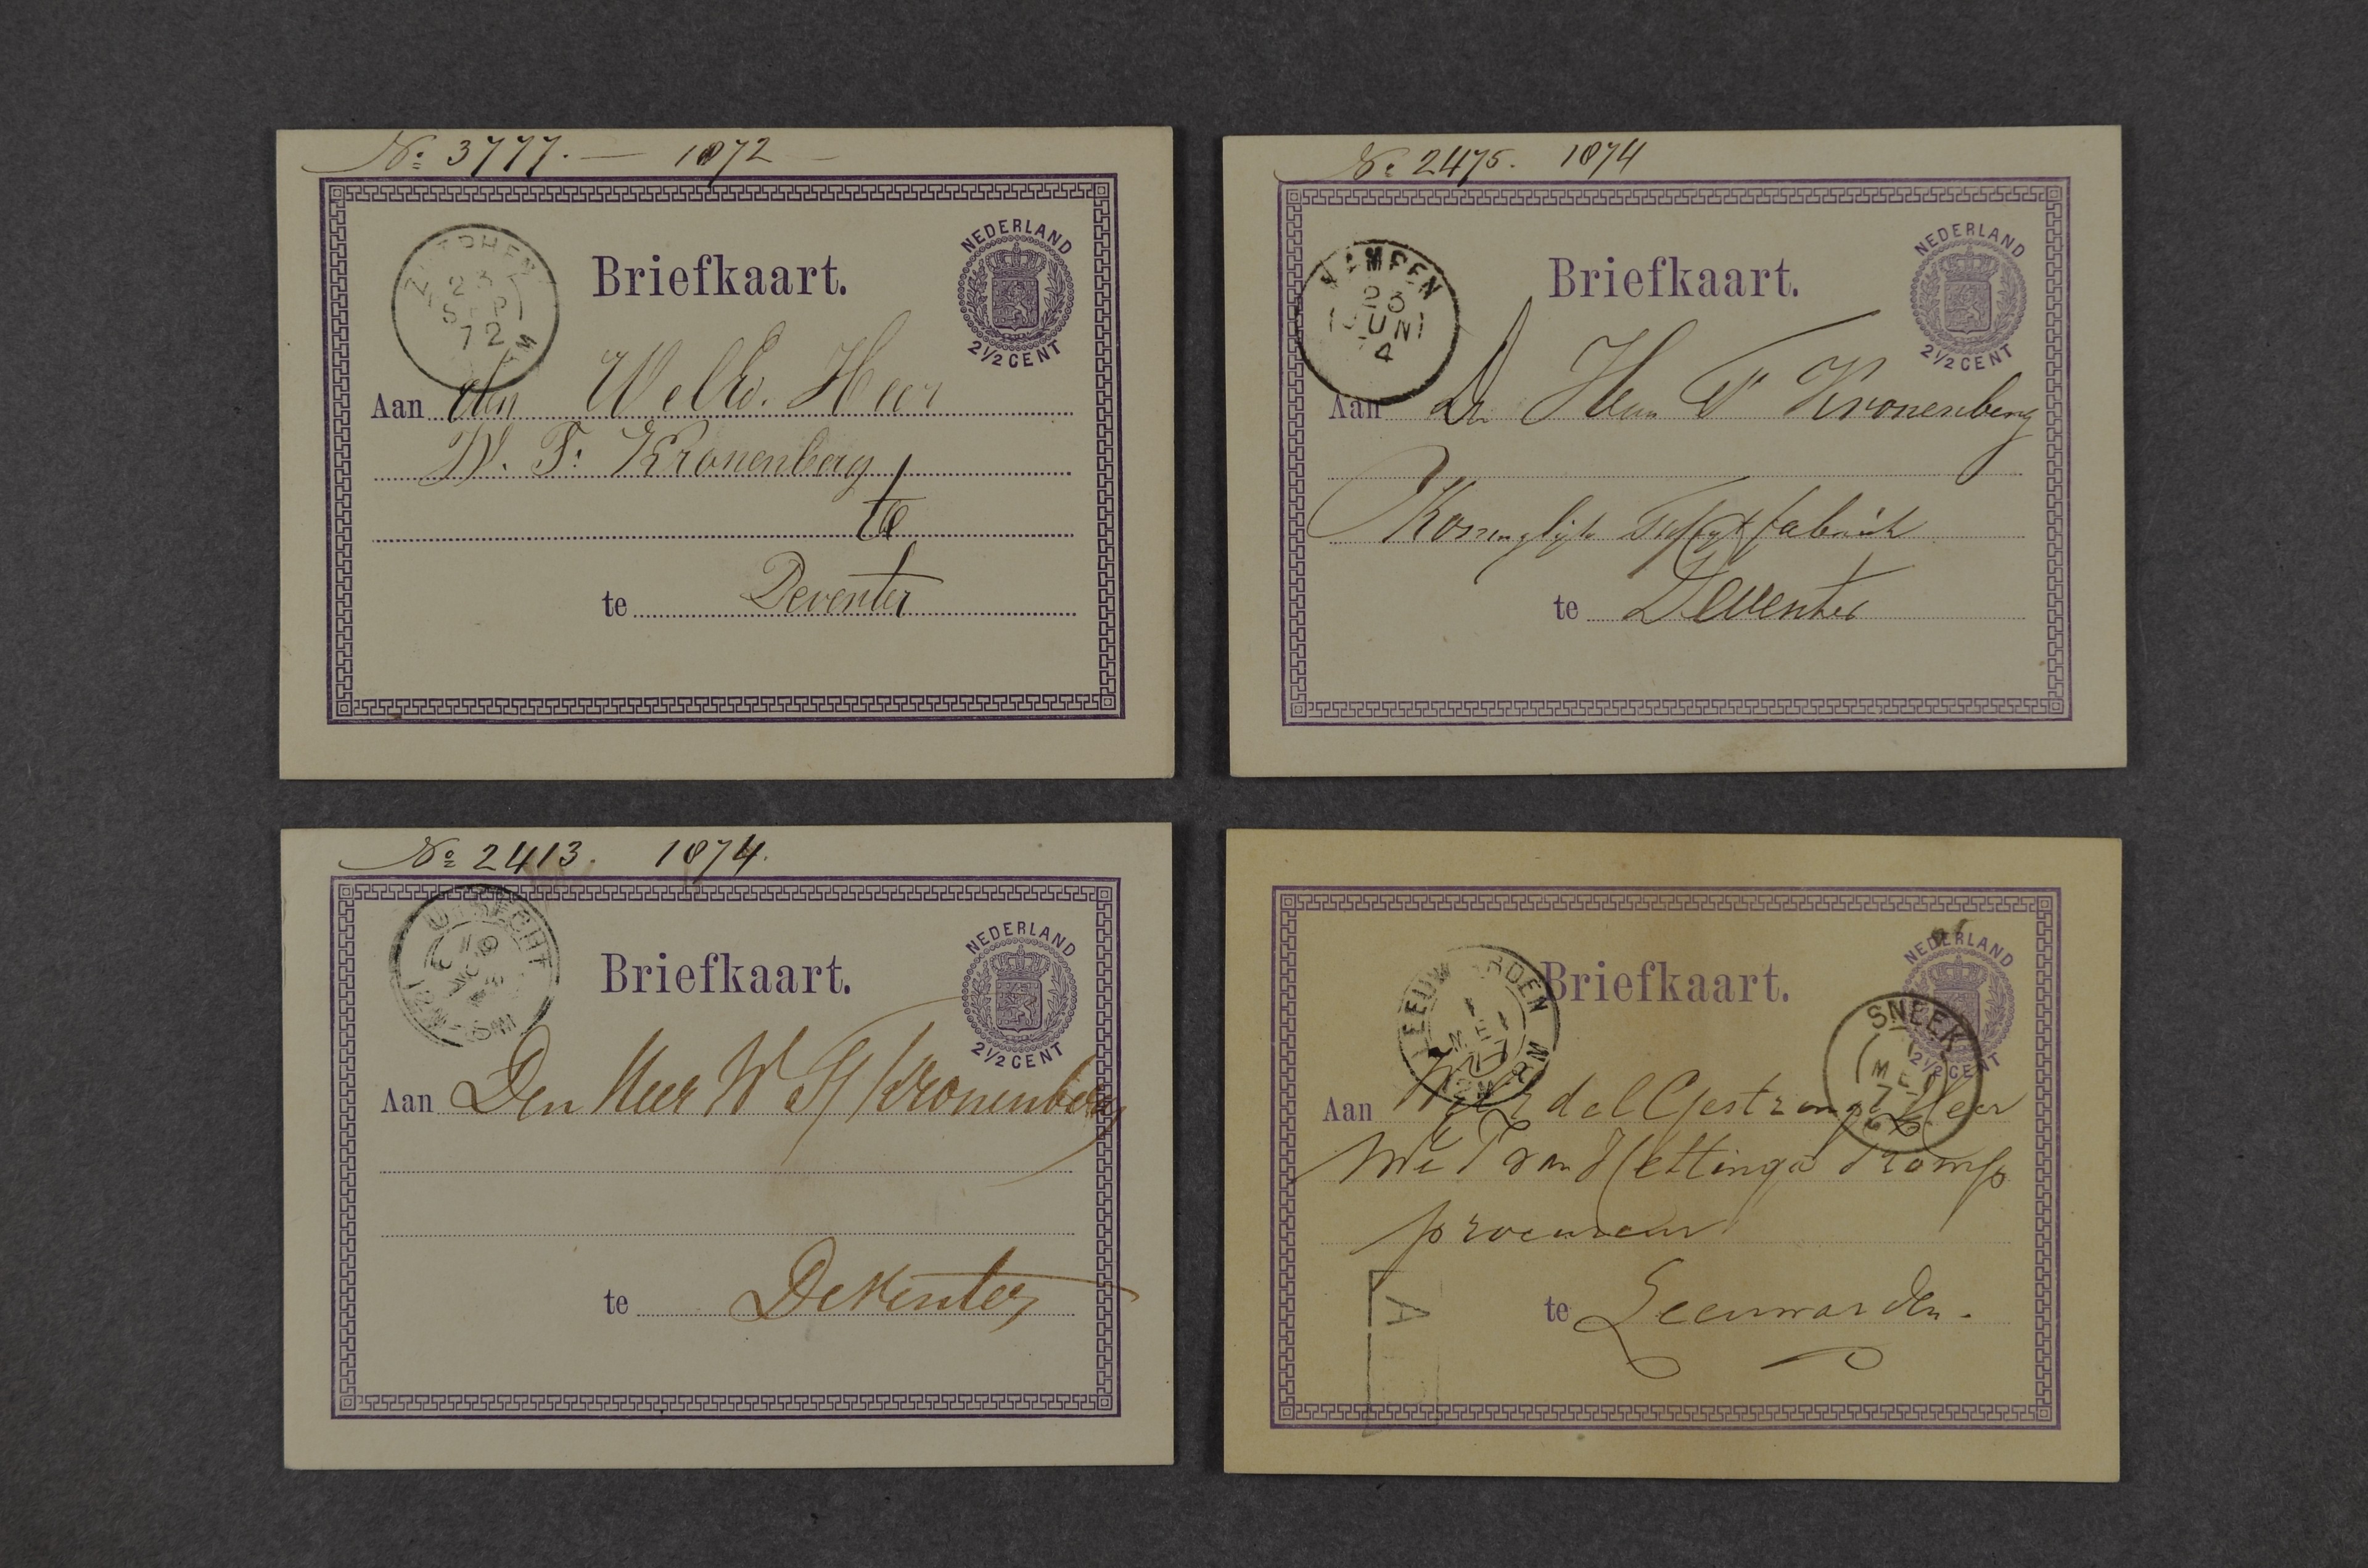 Nº 3777. — 1872 —
ZUTPHEN
23
SEP
72
Briefkaart.
NEDERLAND
2½ CENT
Aan den Heer
W. F. Kronenberg
te
te Deventer
Nº 2475. 1874
KAMPEN
23
JUNI
74
Briefkaart.
NEDERLAND
2½ CENT
Aan Den Heer Kronenberg
Koninglijke fabriek
te Deventer
Nº 2413. 1874.
UTRECHT
Briefkaart.
NEDERLAND
2½ CENT
Aan Den Heer W F Kronenberg
te Deventer
LEEUWARDEN
1
MEI
Briefkaart.
NEDERLAND
2½ CENT
SNEEK
1
MEI
7
Aan Gestrenge Heer
van Hettinga Tromp
procureur
te Leeuwarden.
A